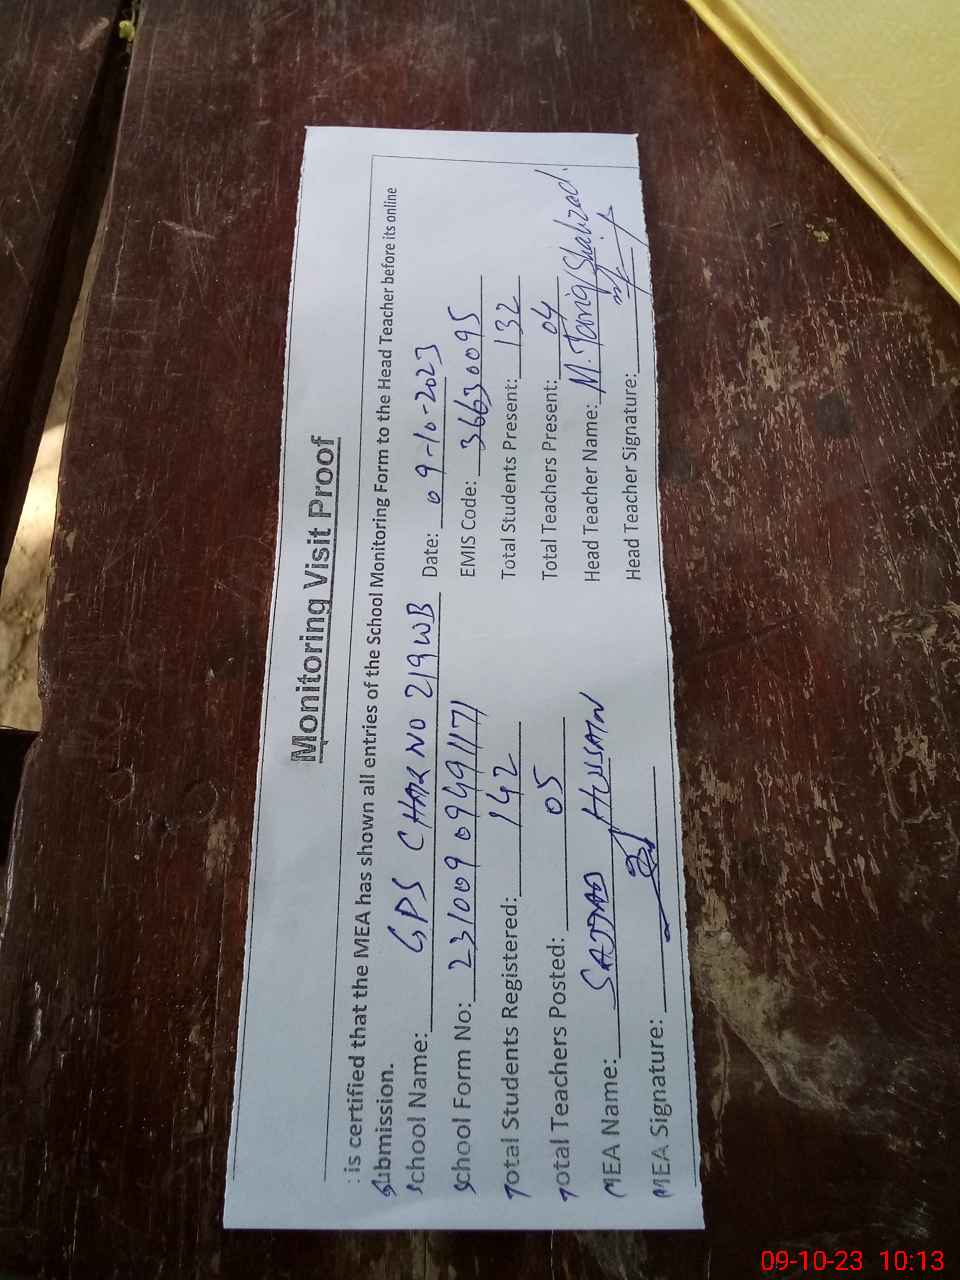 Monitoring Visit Proof
: is certified that the MEA has shown all entries of the School Monitoring Form to the Head Teacher before its online
Submission.
School Name: GPS CHAK NO 219WB Date: 09-10-2023
School Form No: 231009 09491171 EMIS Code: 36630095
Total Students Registered: 142 Total Students Present: 132
Total Teachers Posted: 05 Total Teachers Present: 04
MEA Name: SAJJAD HUSSAIN Head Teacher Name: M. Tariq Shahzad.
MEA Signature: Head Teacher Signature:
09-10-23 10:13